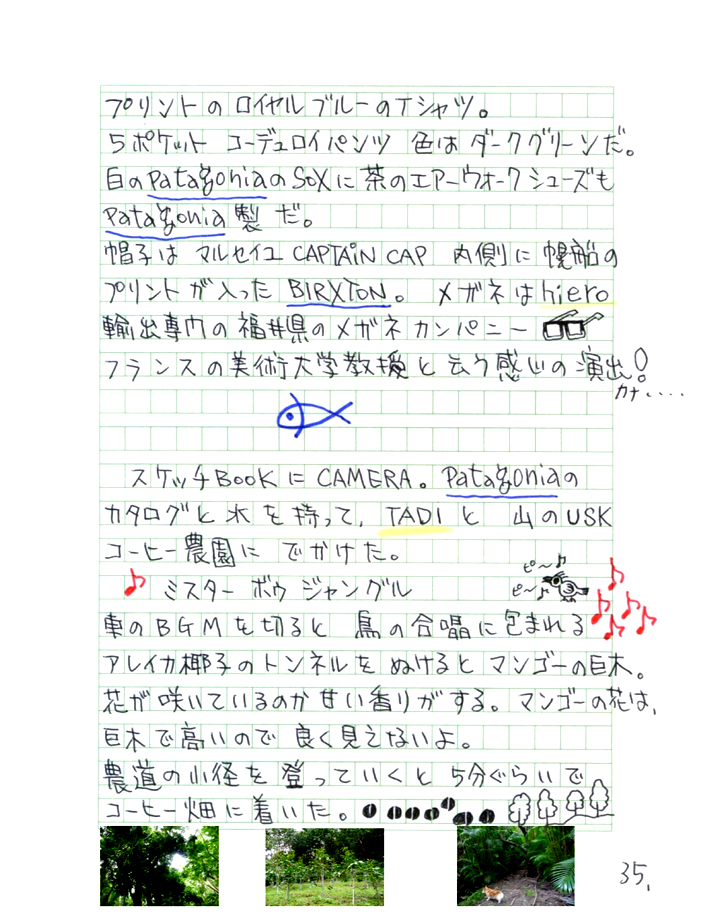 プリントのロイヤルブルーのTシャツ。
5ポケット コーデュロイパンツ 色はダークグリーンだ。
白のPatagoniaのSoXに茶のエアーウォークシューズも
Patagonia製だ。
帽子は マルセイユCAPTAiN CAP 内側に幌船の
プリントが入ったBIRXTON。 メガネはhiero
輸出専門の福井県のメガネカンパニー
フランスの美術大学教授と云う感じの演出!
カナ....
スケッチBooKにCAMERA。Patagoniaの
カタログと水を持って、TADIと 山のUSK
コーヒー農園に でかけた。
♪ ミスター ボゥ ジャングル
ピ〜♪
ピ〜♪
車のBGMを切ると 鳥の合唱に包まれる
アレイカ椰子のトンネルを ぬけると マンゴーの巨木。
花が咲いているのか甘い香りがする。マンゴーの花は、
巨木で高いので 良く見えないよ。
農道の小径を登っていくと 5分ぐらいで
コーヒー畑に着いた。
35.